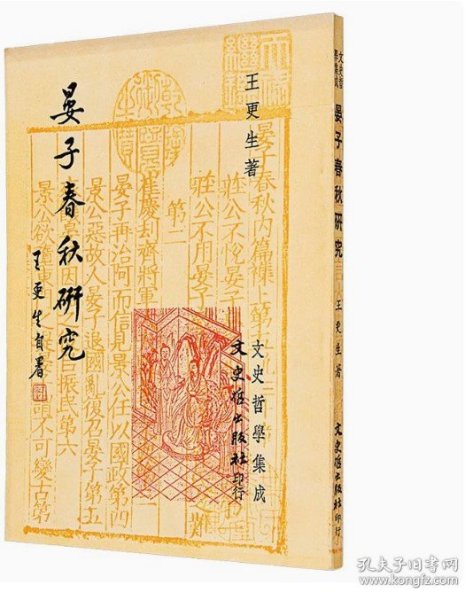 晏子春秋研究
王更生自署
王更生著
文史哲學集成
文史哲出版社印行
晏子春秋內篇襍上第五
莊公不說晏子
莊公不用晏子
第二
崔慶劫齊將軍
晏子再治阿而信見景公任以國政第四
景公惡故人晏子退國亂復召晏子第五
振民第六
景公欲
頭不可變古第
文史哲學集成
晏子春秋研究
王更生著
文史哲出版社印行
孔夫子旧书网
www.kongfz.com